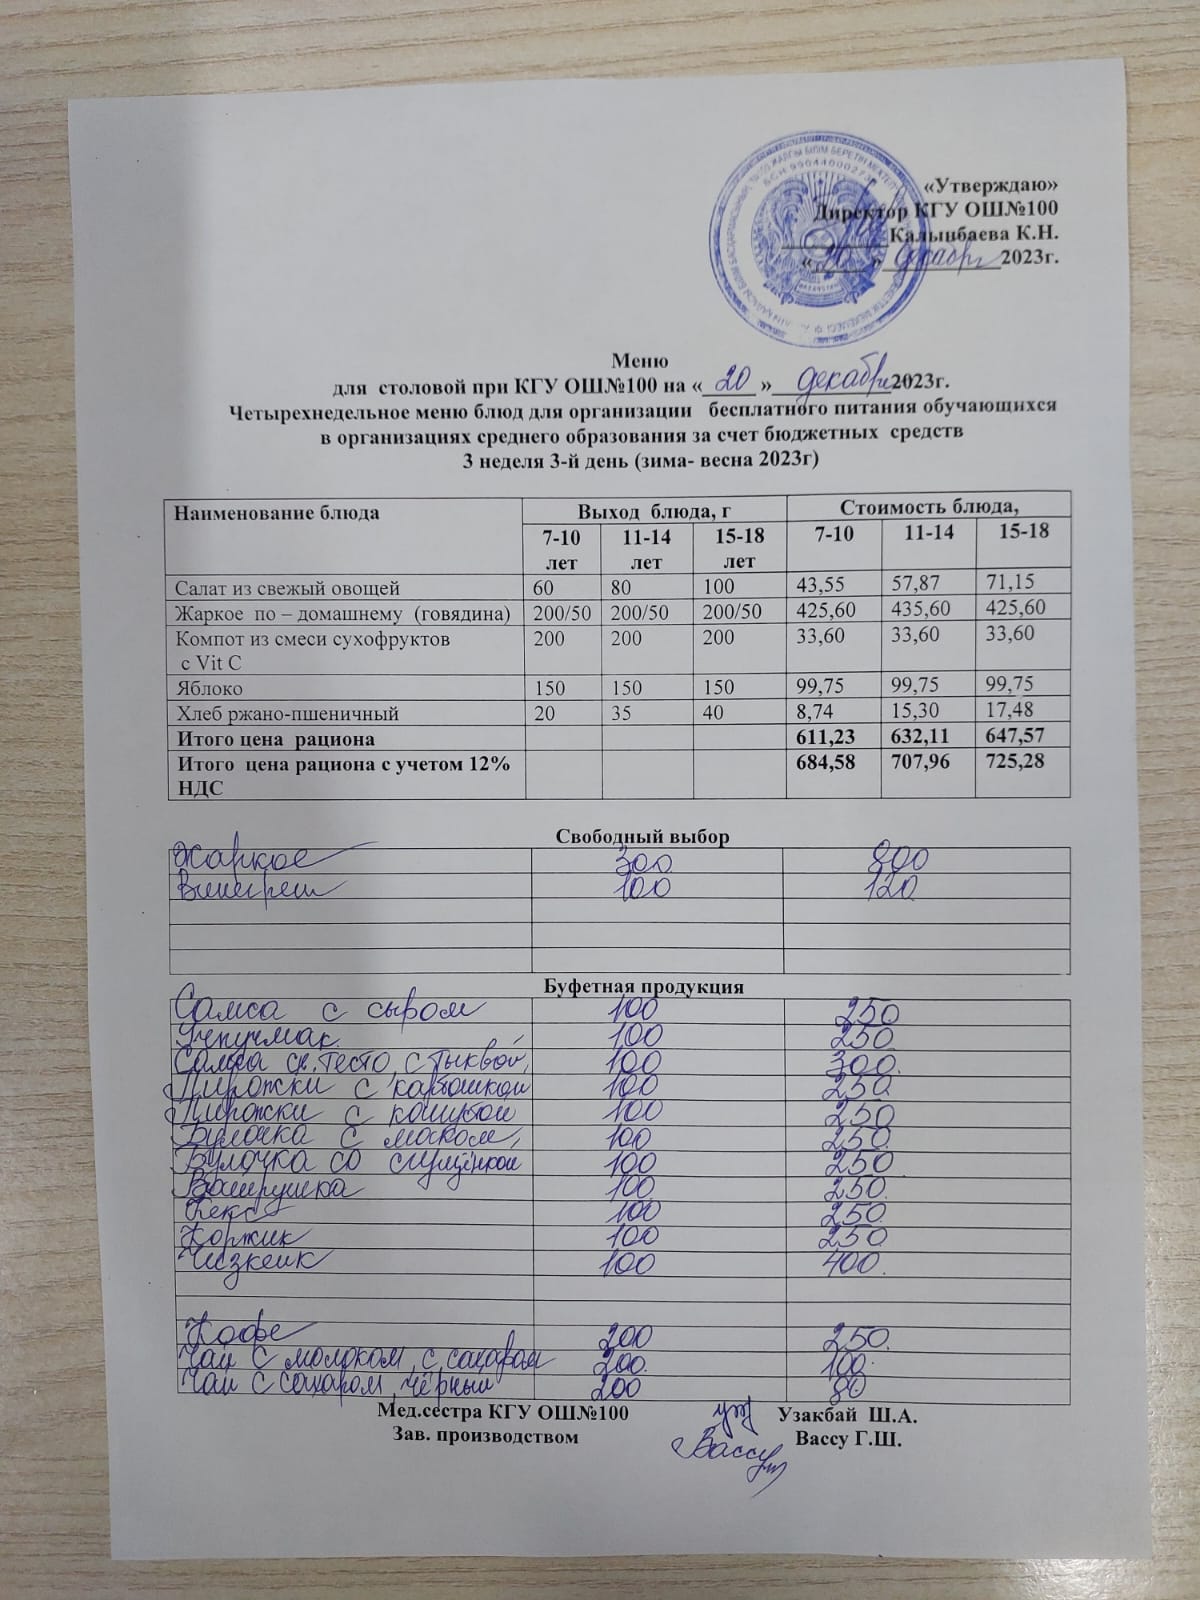 «Утверждаю»
Директор КГУ ОШ№100
Калынбаева К.Н.
«20» декабря 2023г.
Меню
для столовой при КГУ ОШ№100 на «20» декабря 2023г.
Четырехнедельное меню блюд для организации бесплатного питания обучающихся
в организациях среднего образования за счет бюджетных средств
3 неделя 3-й день (зима- весна 2023г)
Наименование блюда Выход блюда, г Стоимость блюда,
7-10 лет 11-14 лет 15-18 лет 7-10 11-14 15-18
Салат из свежый овощей 60 80 100 43,55 57,87 71,15
Жаркое по – домашнему (говядина) 200/50 200/50 200/50 425,60 435,60 425,60
Компот из смеси сухофруктов 200 200 200 33,60 33,60 33,60
с Vit C
Яблоко 150 150 150 99,75 99,75 99,75
Хлеб ржано-пшеничный 20 35 40 8,74 15,30 17,48
Итого цена рациона 611,23 632,11 647,57
Итого цена рациона с учетом 12% 684,58 707,96 725,28
НДС
Свободный выбор
Жаркое 300 800
Винегрет 100 120
Буфетная продукция
Самса с сыром 100 250
Учпучмак 100 250
Самса сл. тесто с тыквой 100 300
Пирожки с картошкой 100 250
Пирожки с капустой 100 250
Булочка с маком, 100 250
Булочка со сгущёнкой 100 250
Ватрушка 100 250
Кекс 100 250
Коржик 100 250
Чизкейк 100 400
Кофе 200 250
Чай с молоком, с сахаром 200 100
Чай с сахаром, чёрный 200 80
Мед.сестра КГУ ОШ№100 Узакбай Ш.А.
Зав. производством Вассу Вассу Г.Ш.